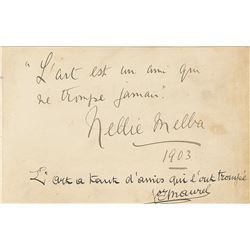 "L'art est un ami qui
ne trompe jamais"
Nellie Melba
1903
L'art a tant d'amis qui l'ont trompé
Maurel